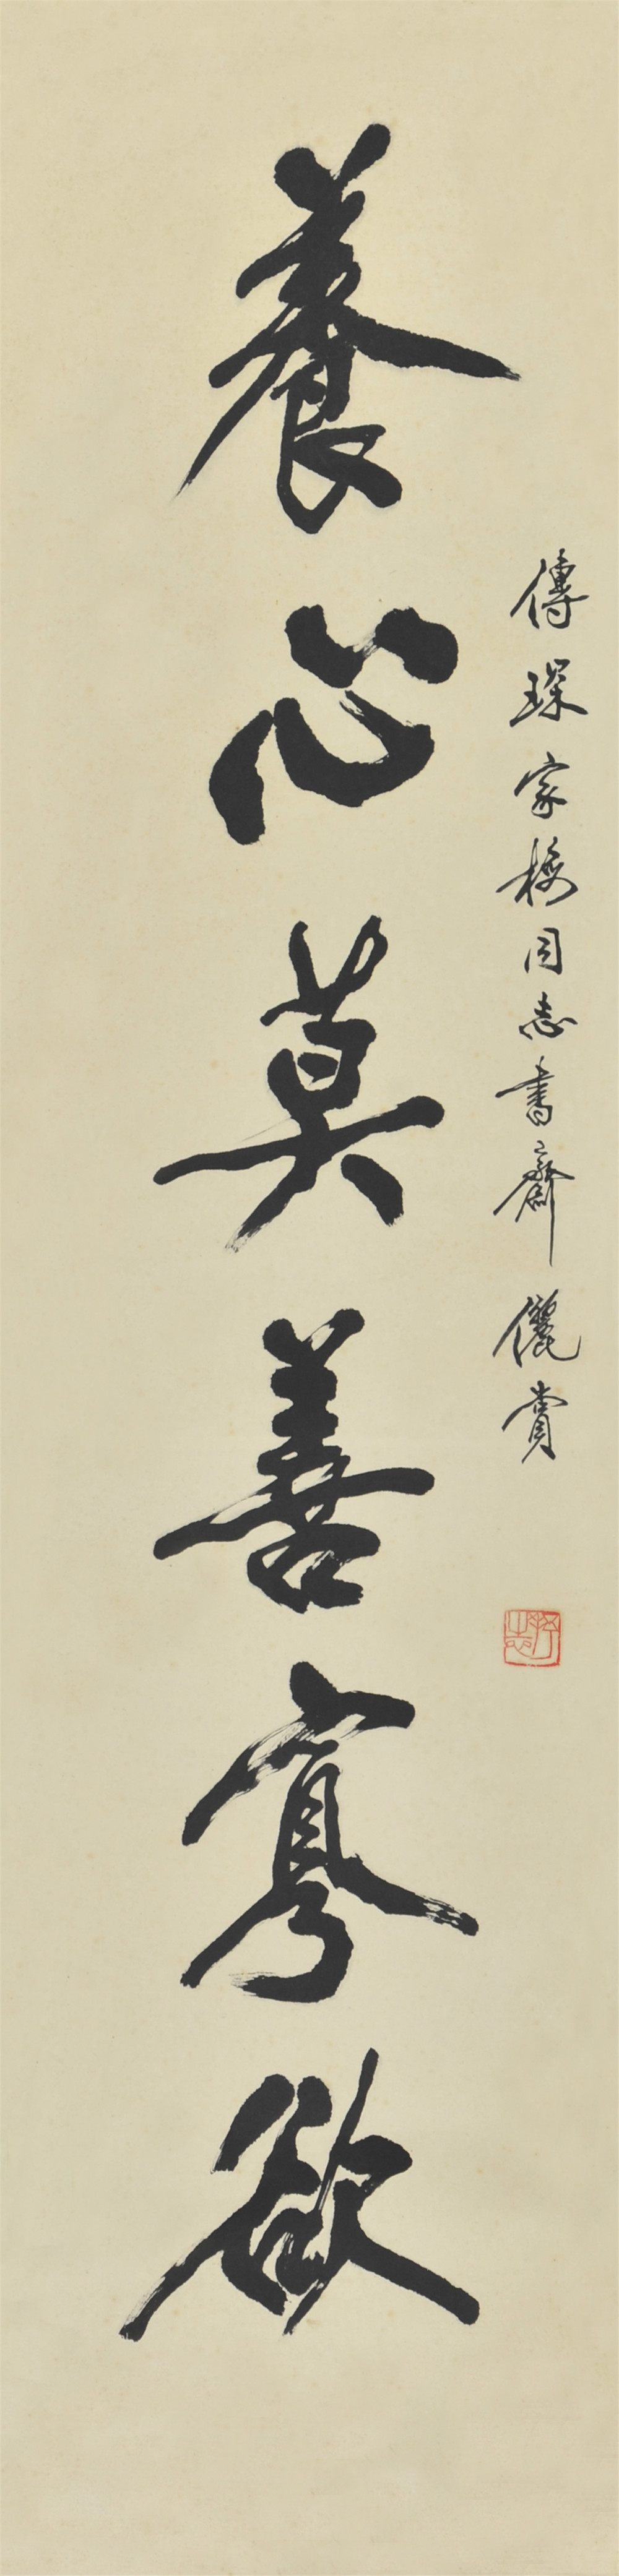 傳琛家同志書齋儷賞
養心莫善寡欲